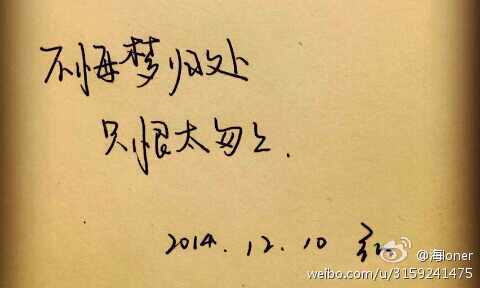 不悔梦归处
只恨太匆匆.
2014.12.10
@海loner
weibo.com/u/3159241475